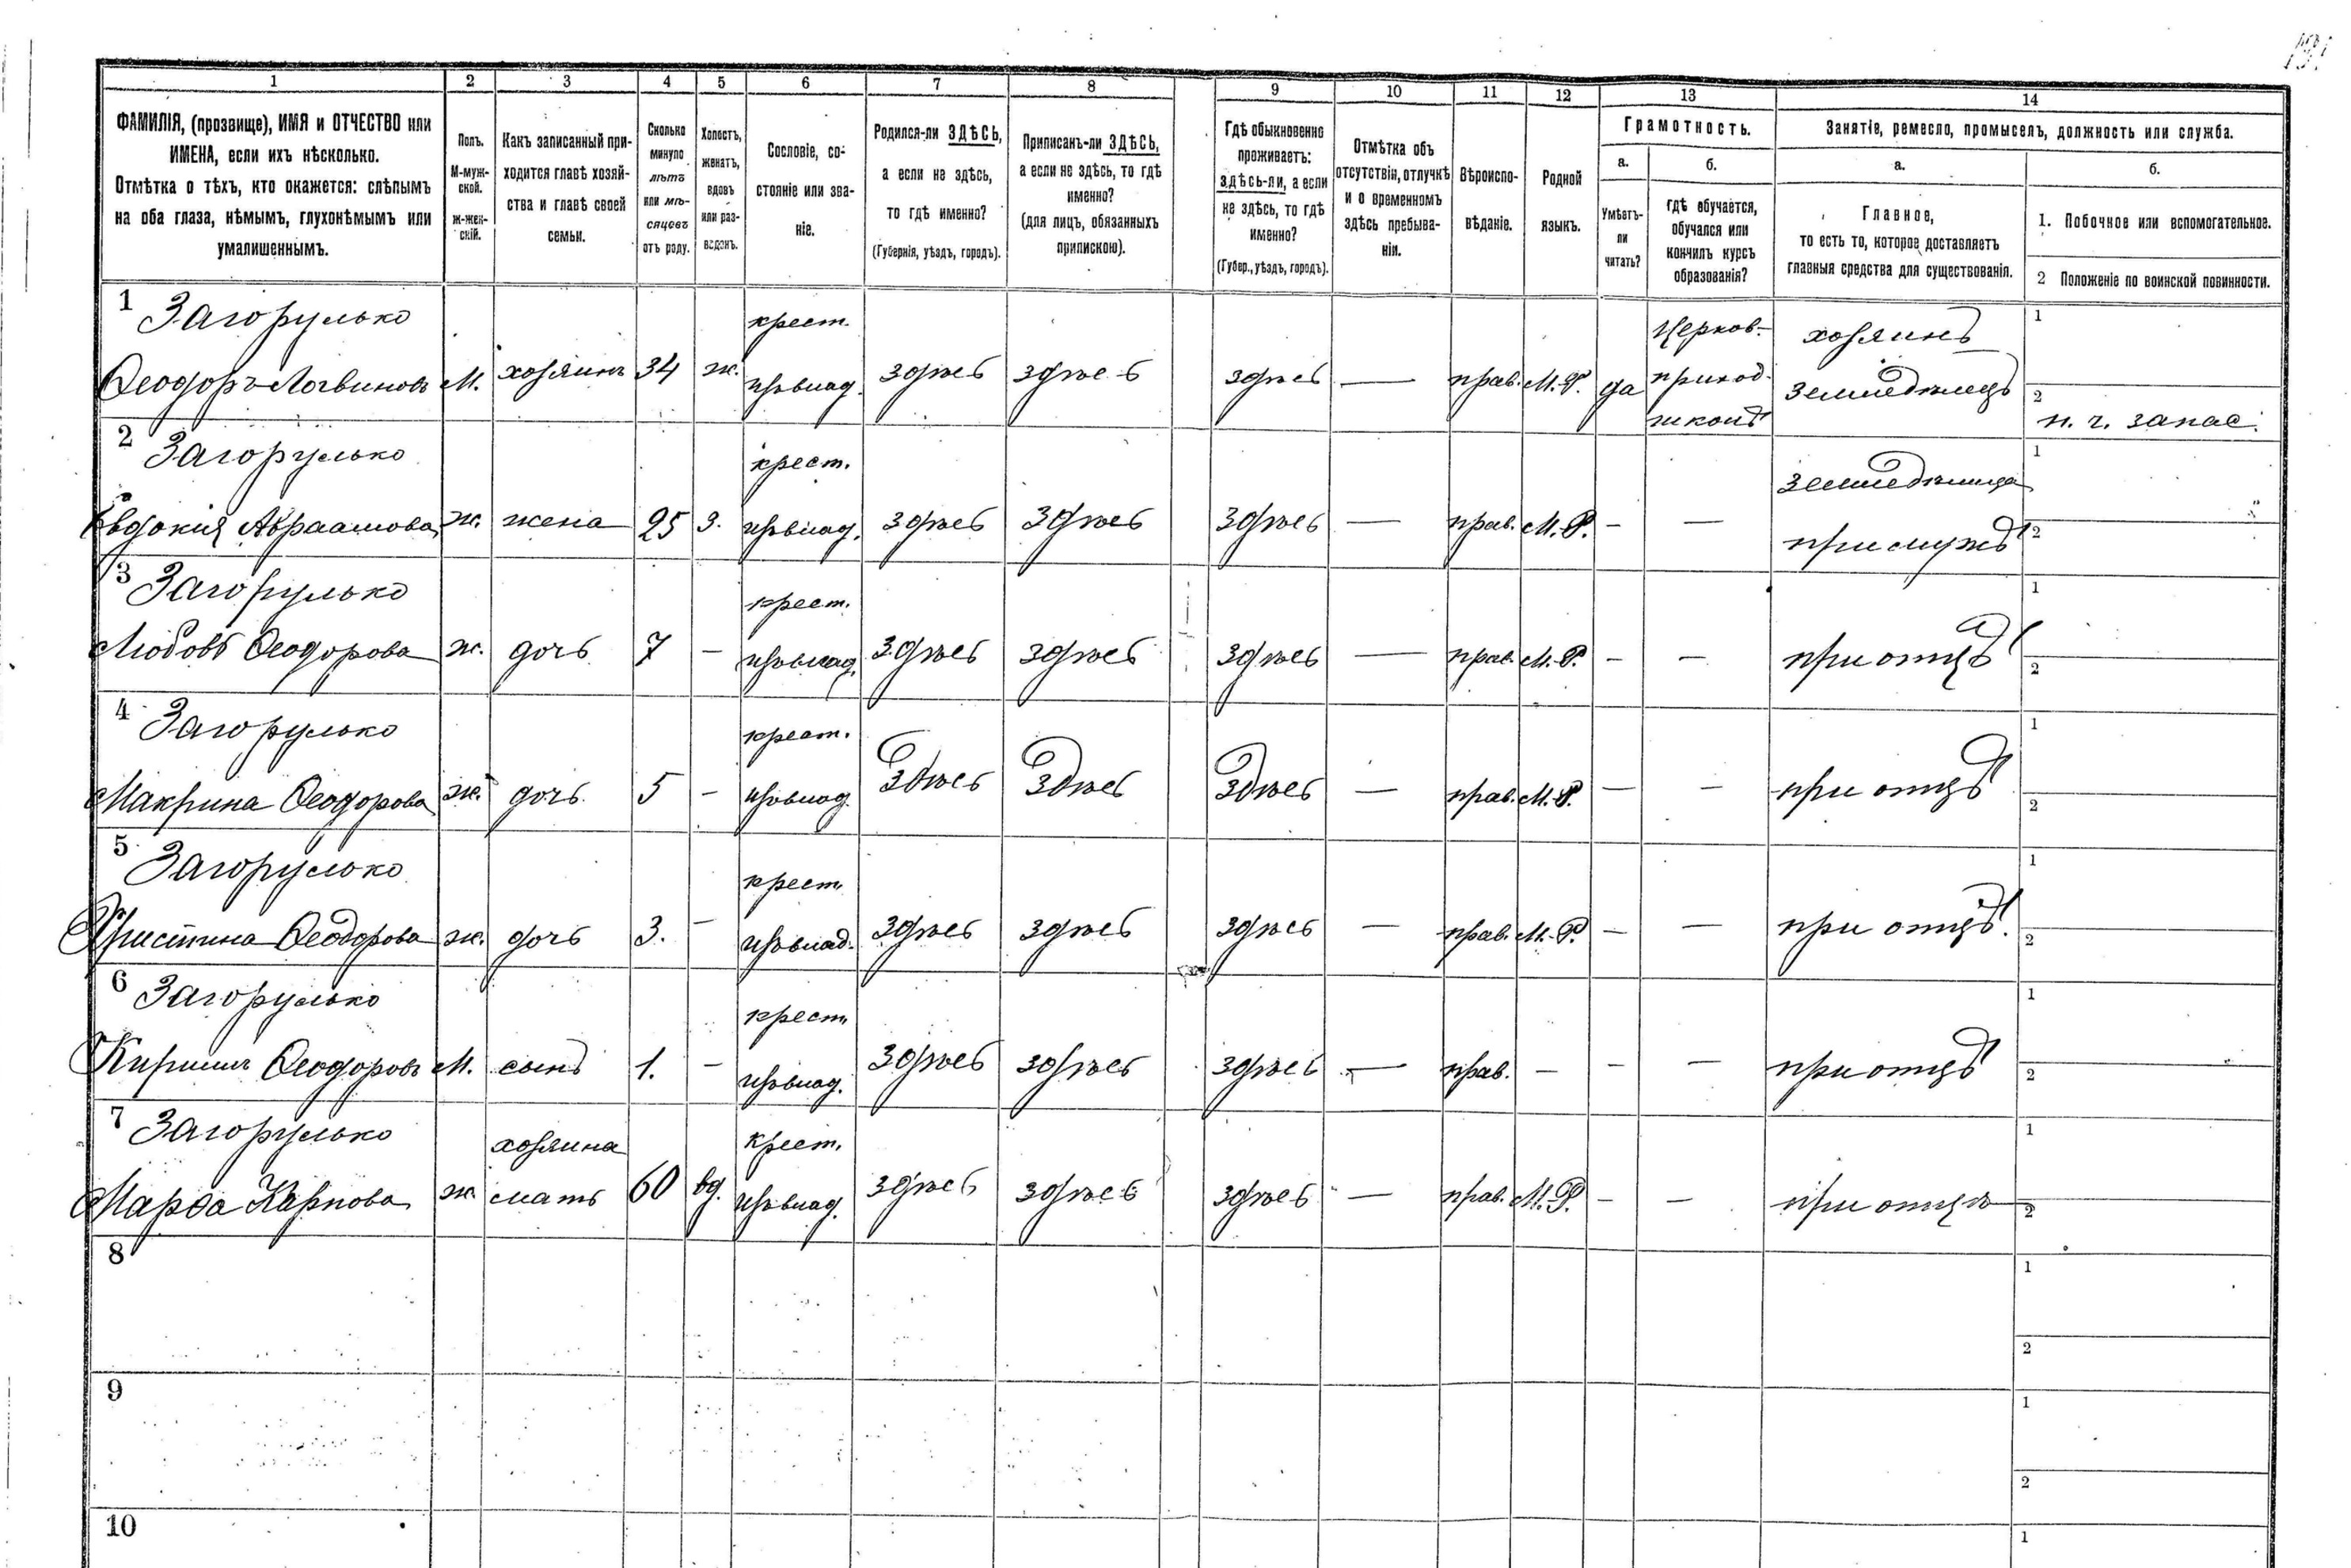 1 2 3 4 5 6 7 8 9 10 11 12 13 14
ФАМИЛІЯ, (прозвище), ИМЯ и ОТЧЕСТВО или
ИМЕНА, если ихъ нѣсколько.
Отмѣтка о тѣхъ, кто окажется: слѣпымъ
на оба глаза, нѣмымъ, глухонѣмымъ или
умалишеннымъ.
Полъ.
М-муж-
ской.
ж-жен-
скій.
Какъ записанный при-
ходится главѣ хозяй-
ства и главѣ своей
семьи.
Сколько
минуло
лѣтъ
или мѣ-
сяцевъ
отъ роду.
Холостъ,
женатъ,
вдовъ
или раз-
веденъ.
Сословіе, со-
стояніе или зва-
ніе.
Родился-ли ЗДѢСЬ,
а если не здѣсь,
то гдѣ именно?
(Губернія, уѣздъ, городъ).
Приписанъ-ли ЗДѢСЬ,
а если не здѣсь, то гдѣ
именно?
(для лицъ, обязанныхъ
припискою).
Гдѣ обыкновенно
проживаетъ:
ЗДѢСЬ-ЛИ, а если
не здѣсь, то гдѣ
именно?
(Губер., уѣздъ, городъ).
Отмѣтка объ
отсутствіи, отлучкѣ
и о временномъ
здѣсь пребыва-
ніи.
Вѣроиспо-
вѣданіе.
Родной
языкъ.
Грамотность.
а.
Умѣетъ-
ли
читать?
б.
гдѣ обучается,
обучался или
кончилъ курсъ
образованія?
Занятіе, ремесло, промыселъ, должность или служба.
а.
Главное,
то есть то, которое доставляетъ
главныя средства для существованія.
б.
1. Побочное или вспомогательное.
2 Положеніе по воинской повинности.
1 Загорулько крест. Церков.- хозяинъ 1
Ѳеодоръ Логвиновъ М. хозяинъ 34 ж. здѣсь здѣсь здѣсь — прав. М.Р. да приход. земледѣлецъ 2
школѣ н. ч. запас.
2 Загорулько крест. земледѣлица 1
Евдокія Авраамова ж. жена 25 з. здѣсь здѣсь здѣсь — прав. М.Р. — — при мужѣ 2
3 Загорулько крест. 1
Любовь Ѳеодорова ж. дочь 7 — здѣсь здѣсь здѣсь — прав. М.Р. — — при отцѣ 2
4 Загорулько крест. 1
Макрина Ѳеодорова ж. дочь. 5 — здѣсь здѣсь здѣсь — прав. М.Р. — — при отцѣ 2
5 Загорулько крест. 1
Христина Ѳеодорова ж. дочь 3. — здѣсь здѣсь здѣсь — прав. М.Р. — — при отцѣ. 2
6 Загорулько крест. 1
Кирилъ Ѳеодоровъ М. сынъ 1. — здѣсь здѣсь здѣсь — прав. — — — при отцѣ 2
7 Загорулько хозяина крест. 1
Марѳа Карпова ж. мать 60 вд. здѣсь здѣсь здѣсь — прав. М.Р. — — при отцѣ 2
8 1
2
9 1
2
10 1